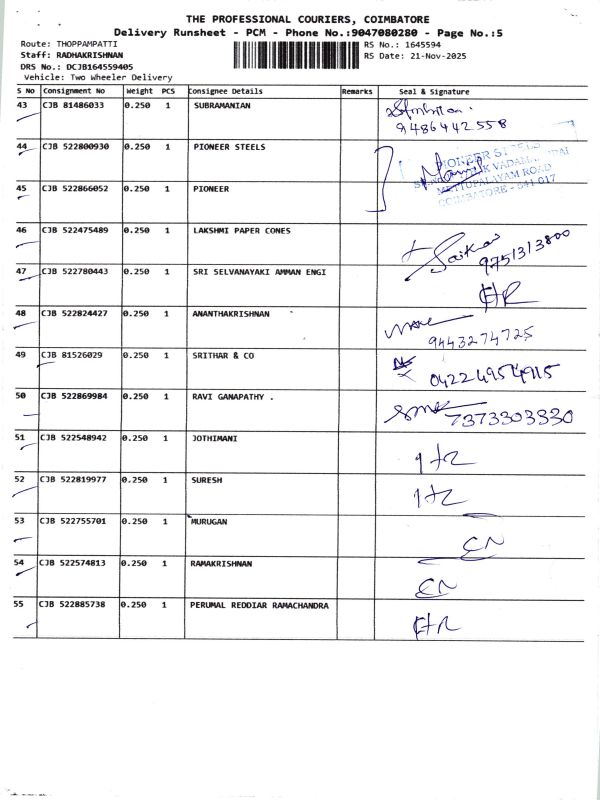 THE PROFESSIONAL COURIERS, COIMBATORE
Delivery Runsheet - PCM - Phone No.:9047080280 - Page No.:5
Route: THOPPAMPATTI
RS No.: 1645594
Staff: RADHAKRISHNAN
RS Date: 21-Nov-2025
DRS No.: DCJB164559405
Vehicle: Two Wheeler Delivery
S No Consignment No Weight PCS Consignee Details Remarks Seal & Signature
43 CJB 81486033 0.250 1 SUBRAMANIAN
9486442558
44 CJB 522800930 0.250 1 PIONEER STEELS
PIONEER
METTUPALAYAM ROAD
COIMBATORE - 641 017
45 CJB 522866052 0.250 1 PIONEER
46 CJB 522475489 0.250 1 LAKSHMI PAPER CONES
9751313800
47 CJB 522780443 0.250 1 SRI SELVANAYAKI AMMAN ENGI
48 CJB 522824427 0.250 1 ANANTHAKRISHNAN
9443274725
49 CJB 81526029 0.250 1 SRITHAR & CO
04224954915
50 CJB 522869984 0.250 1 RAVI GANAPATHY .
7373303330
51 CJB 522548942 0.250 1 JOTHIMANI
52 CJB 522819977 0.250 1 SURESH
53 CJB 522755701 0.250 1 MURUGAN
CN
54 CJB 522574813 0.250 1 RAMAKRISHNAN
CN
55 CJB 522885738 0.250 1 PERUMAL REDDIAR RAMACHANDRA